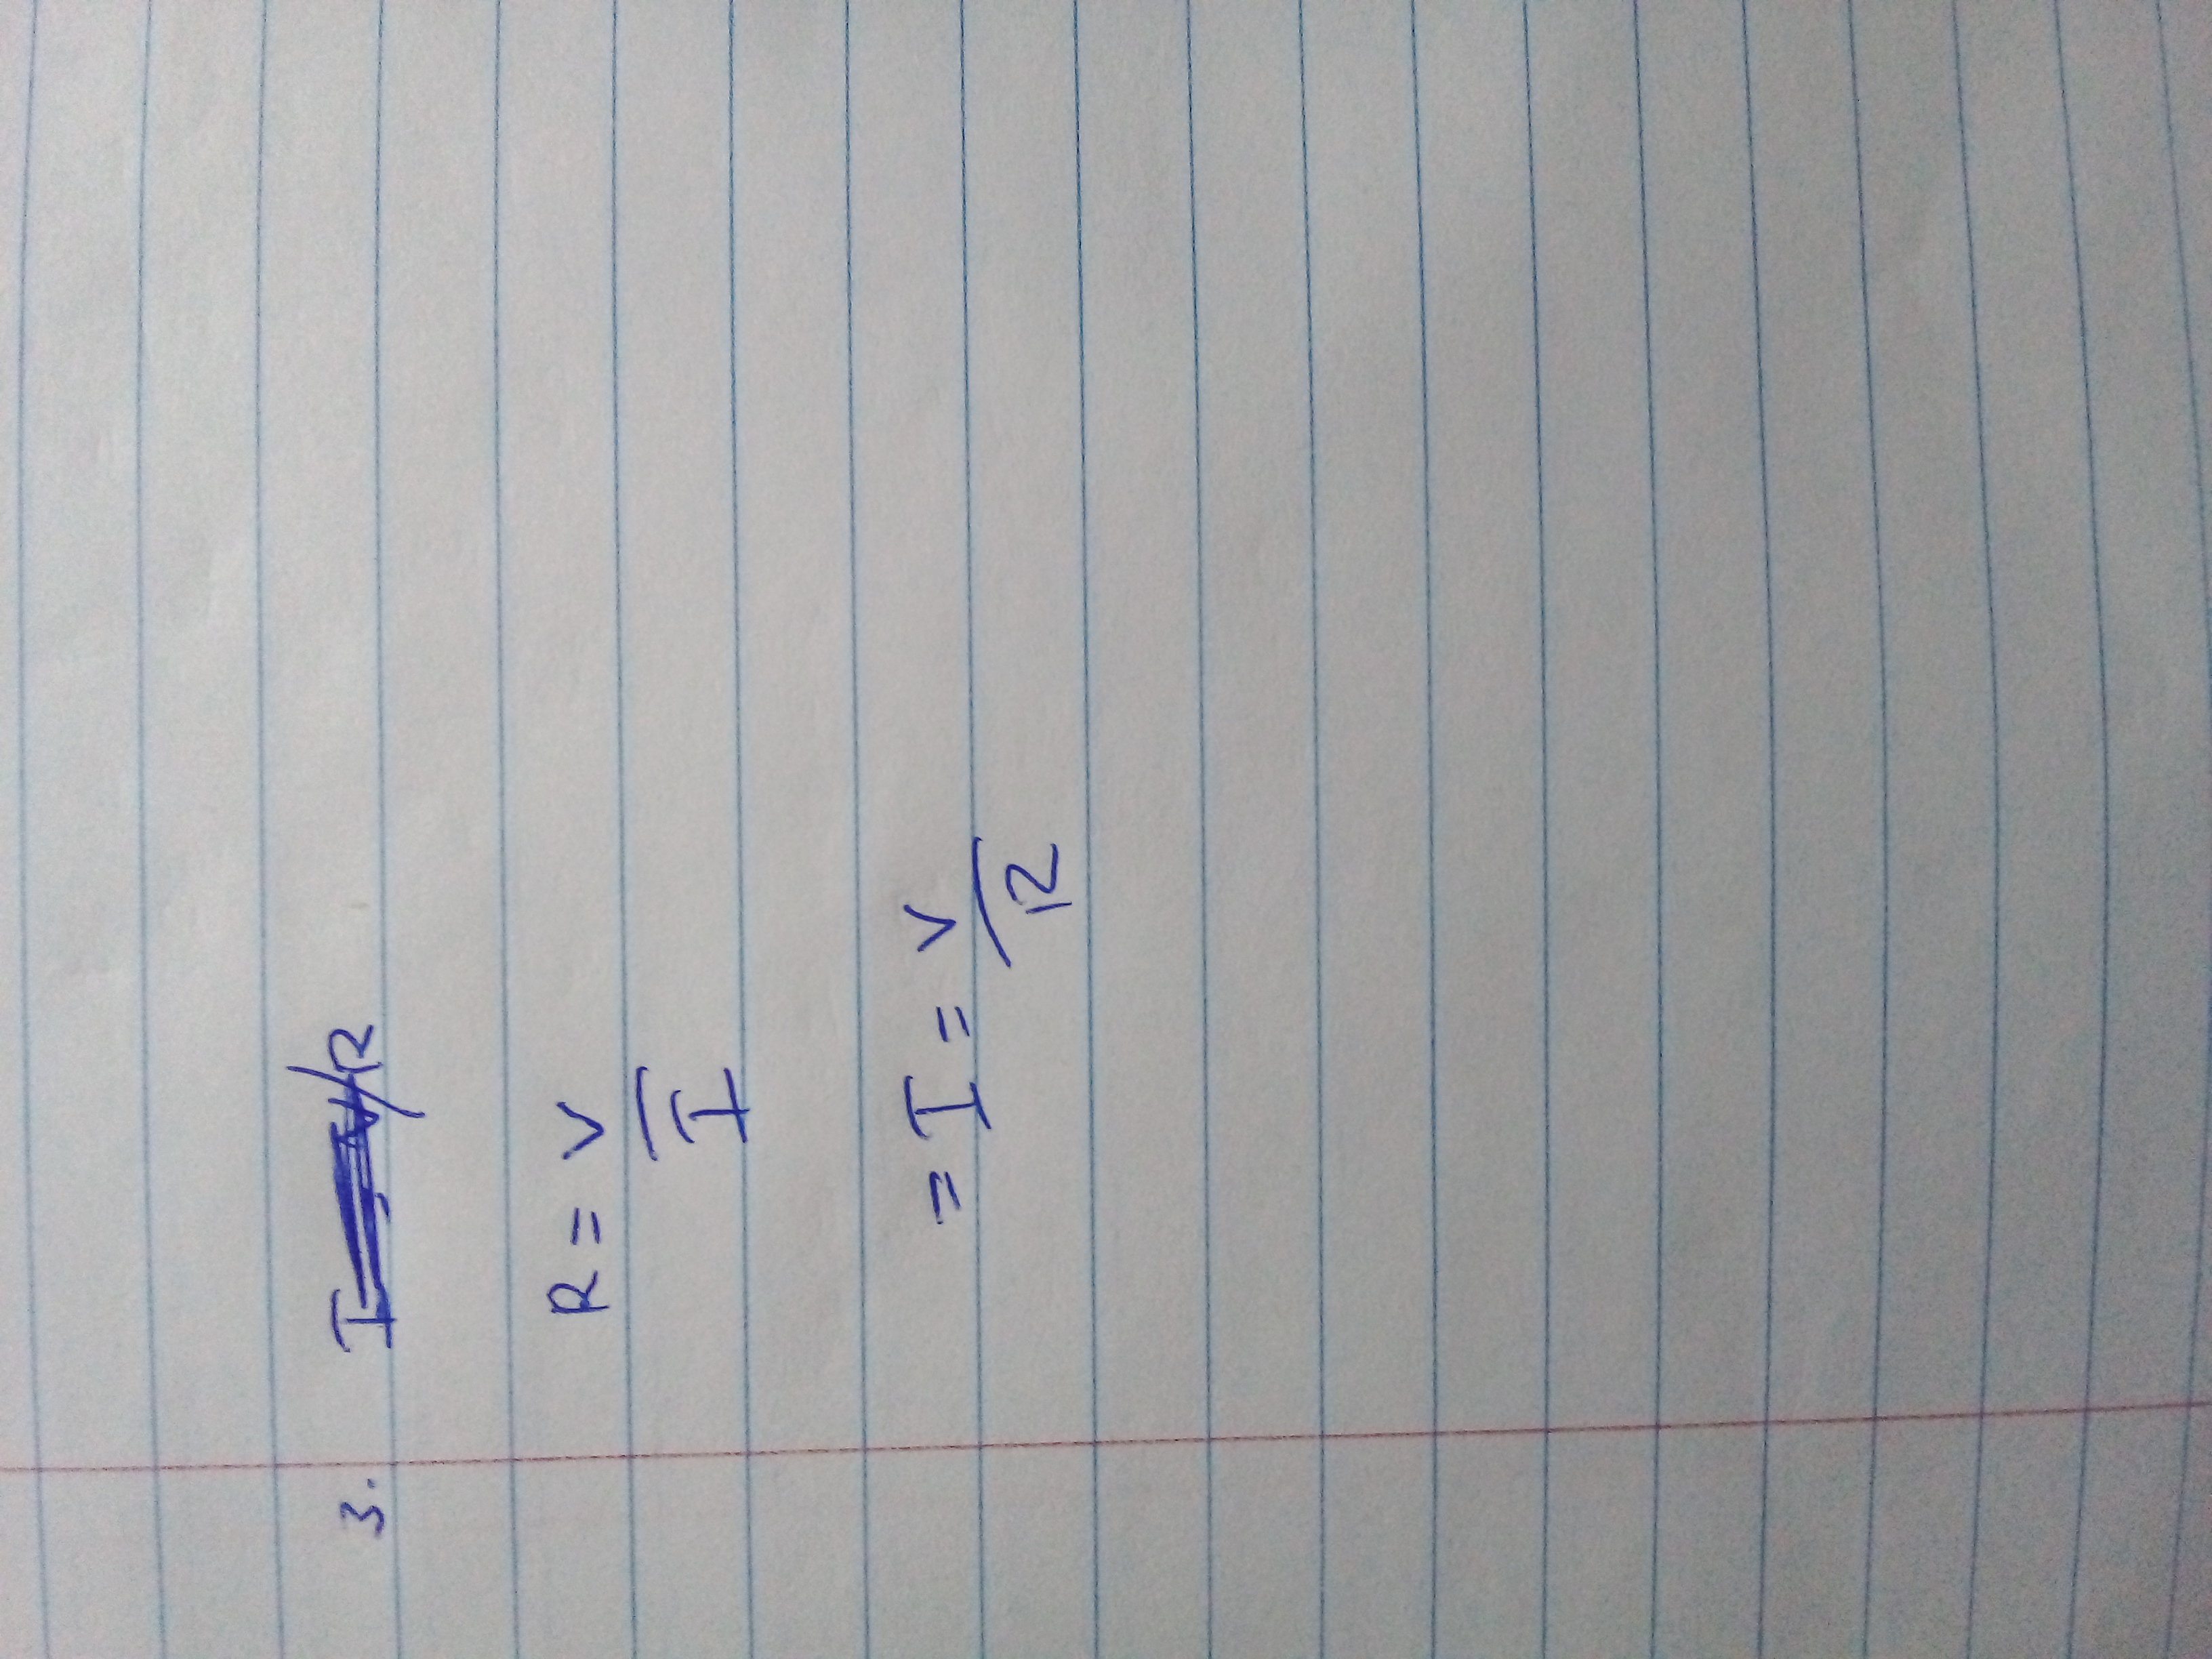 3. I = V/R
R = V
I
= I = V
R